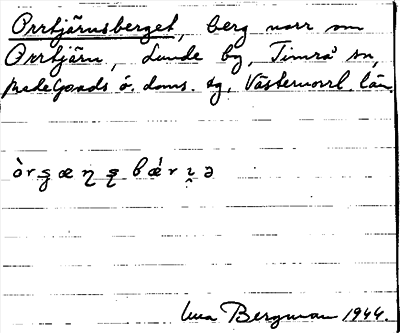 Orrtjärnsberget, berg norr om
Orrtjärn, Lunde by, Timrå sn,
Medelpads ö. doms. sg, Västernorrl. län.
òrʂæɳʂbǽrɩ̣ə
Bergman 1944.